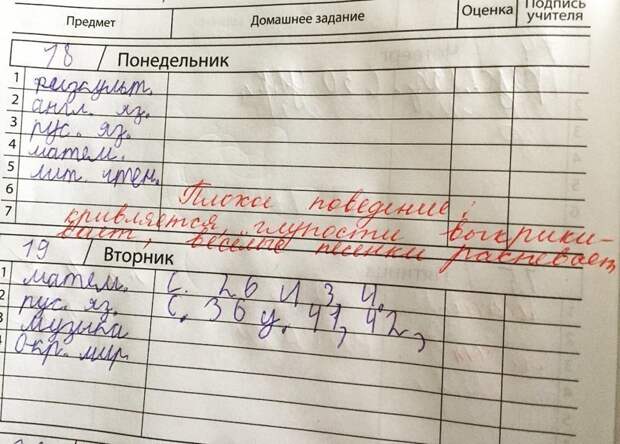 Предмет Домашнее задание Оценка Подпись учителя
18 Понедельник
1 физкульт.
2 англ. яз.
3 рус. яз.
4 матем.
5 лит. чтен.
6 Плохое поведение:
7 кривляется, глупости выкрики-
вает, весёлые песенки распевает
19 Вторник
1 матем. с. 26 №3, 4.
2 рус. яз. с. 36 у. 41, 42,
3 музыка
окр. мир